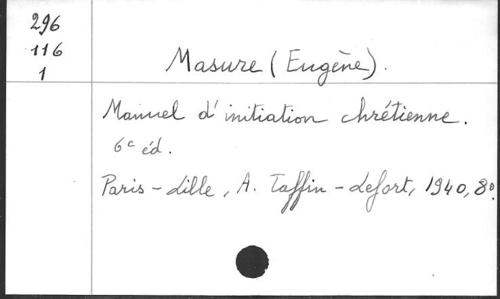 296
116
1
Masure (Eugène).
Manuel d'initiation chrétienne.
6e éd.
Paris - Lille, A. Taffin - Lefort, 1940, 8°.